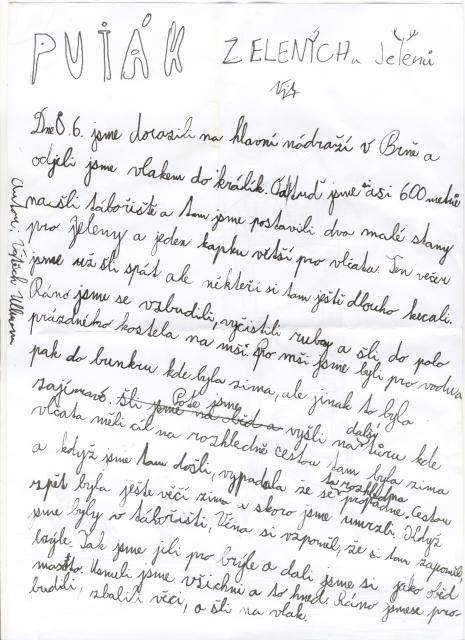 PUŤÁK ZELENÝCH a Jelenů
Dne 8. 6. jsme dorazili na hlavní nádraží v Brně a
odjeli jsme vlakem do králík. Odtuď jsme asi 600 metrů
našli tábořiště a tam jsme postavili dva malé stany
pro Jeleny a jeden kapku větší pro vlčata. Ten večer
jsme už šli spát ale někteří si tam ještě dlouho kecali.
Ráno jsme se vzbudili, vyčistili zuby a šli, do polo
prázdného kostela na mši. Po mši jsme byli pro vodu a
pak do bunkru kde byla zima, ale jinak to bylo
zajímavé. Šli jsme na oběd a Poté jsme vyšli na další túru kde
vlčata měli cíl na rozhledně cestou tam byla zima
a když jsme tam došli, vypadala že se ta rozhledna propadne. Cestou
zpět byla ještě věčí zima a skoro jsme umrzli. Když
jsme byly v tábořišti, Véna si vzpoměl, že si tam zapoměl,
brýle. Tak jsme jili pro brýle a dali jsme si jako oběd
maso. Usnuli jsme všichni a to hned. Ráno jsmese pro-
budili, zbalili věci, a šli na vlak.
Autor: Vojtěch Ullmann